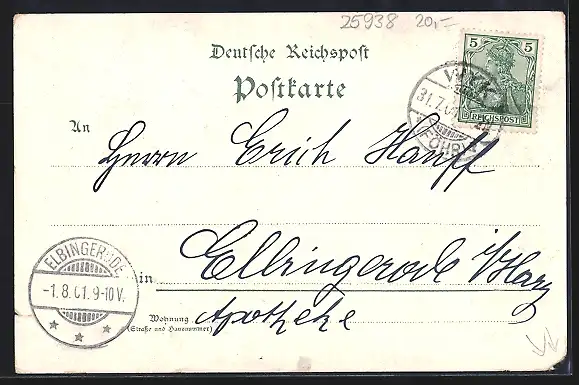 25938 20,-
Deutsche Reichspost
Postkarte
5 5
REICHSPOST
WYK
31.7.01
FÖHR
An
Herrn Erich Hanff
ELBINGERODE
-1.8.01.9-10V.
in Elbingerode i/Harz
Wohnung
(Straße und Hausnummer)
Apotheke